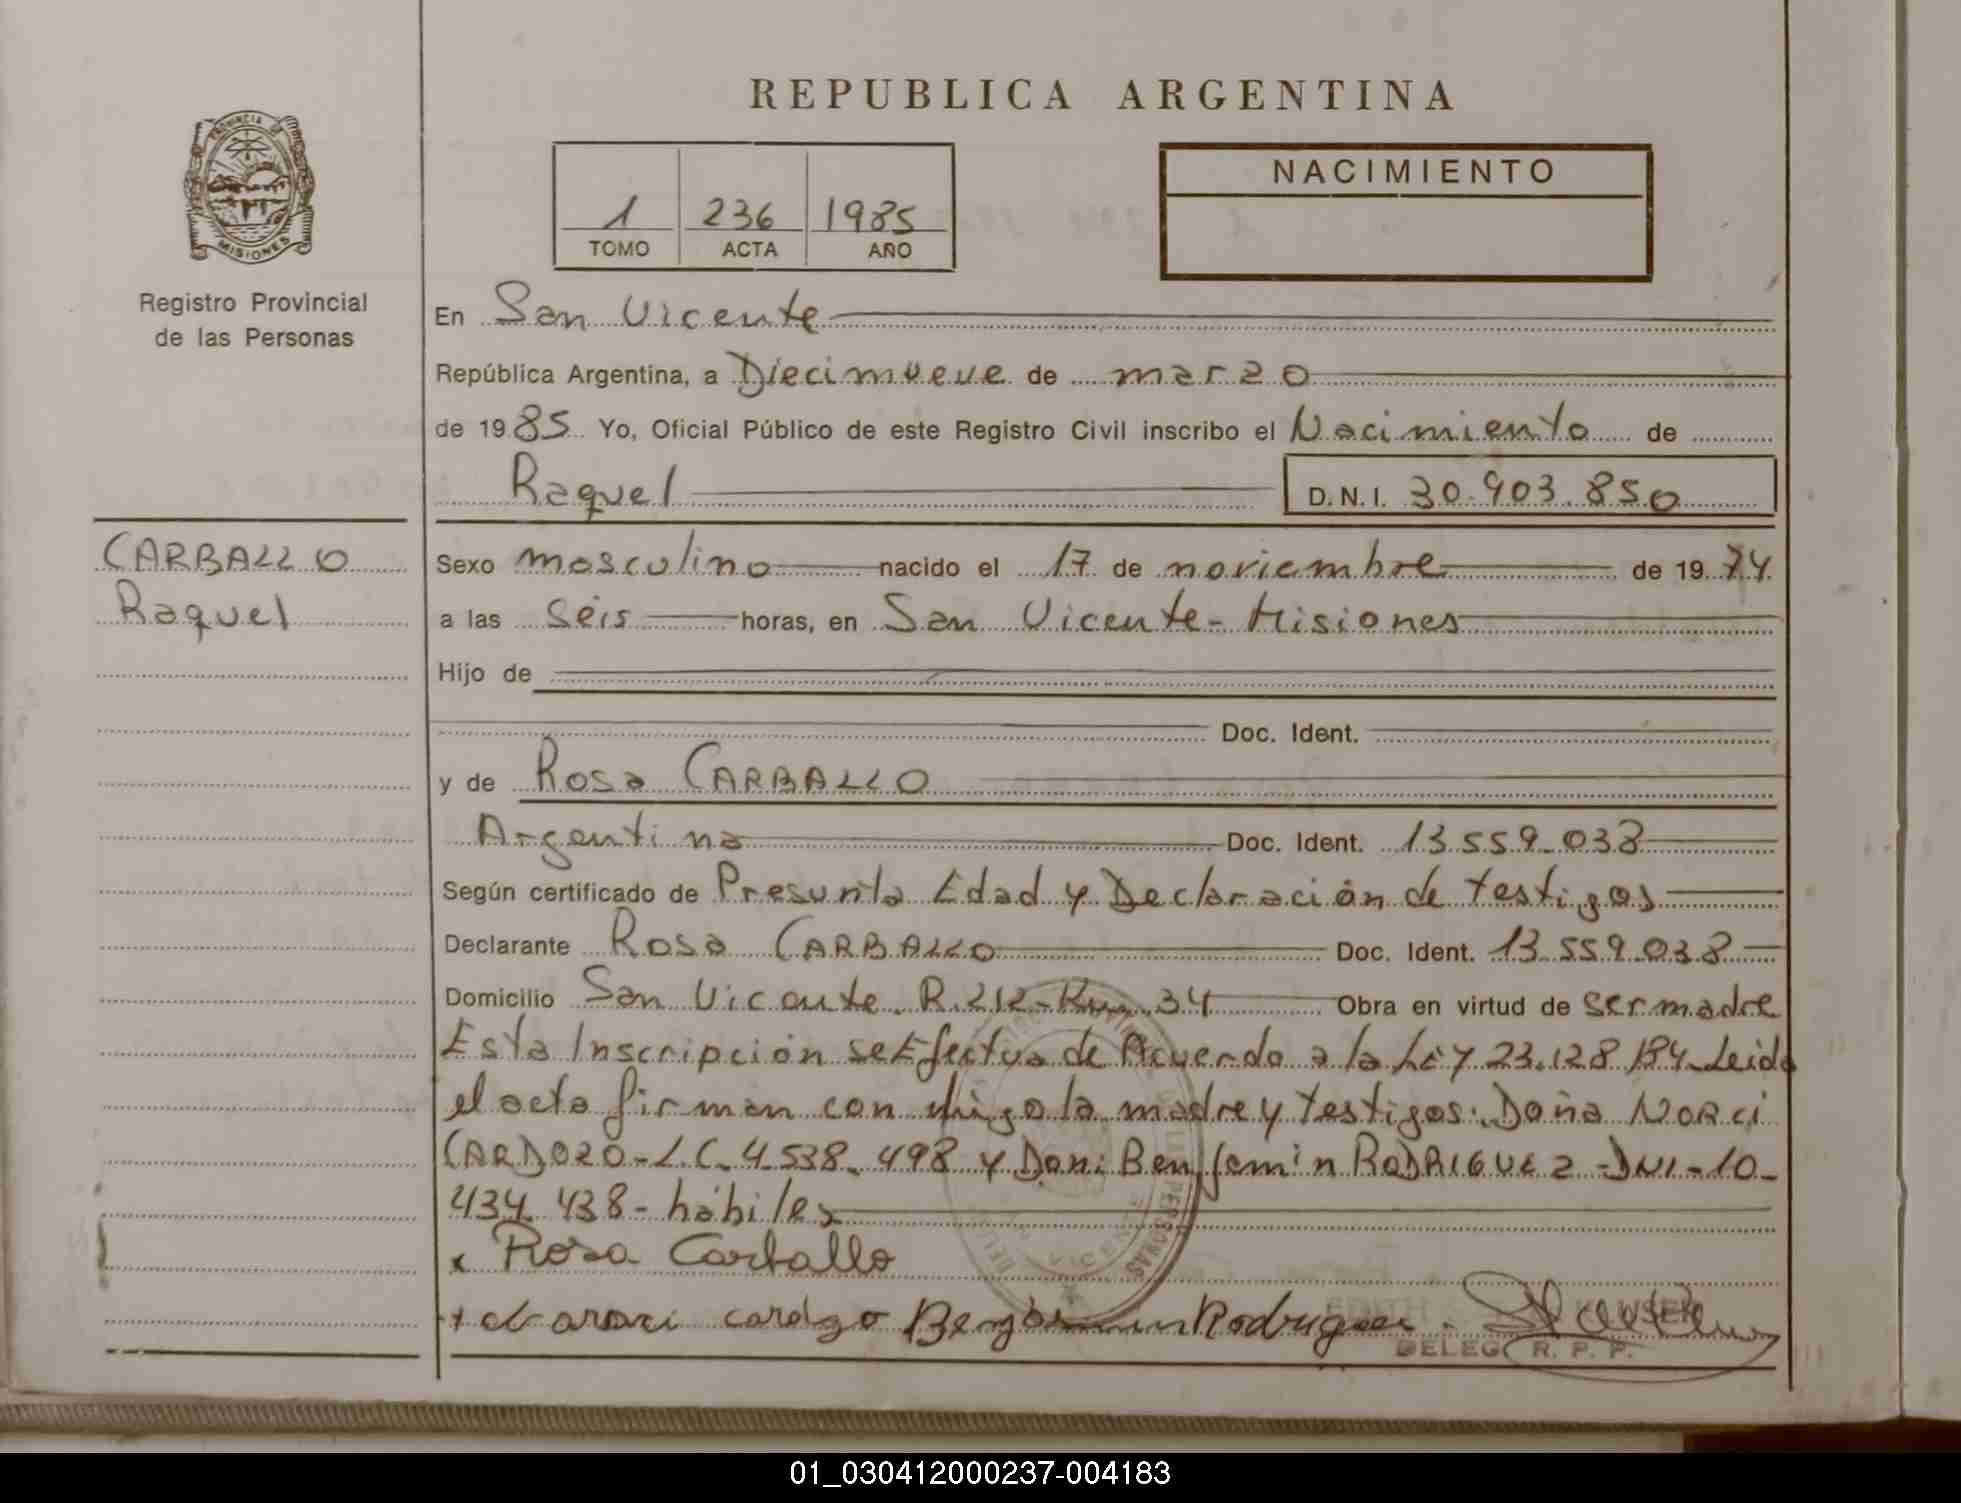 REPUBLICA ARGENTINA
PROVINCIA DE
MISIONES
Registro Provincial
de las Personas
1 236 1985
TOMO ACTA AÑO
NACIMIENTO
En San Vicente
República Argentina, a Diecinueve de marzo
de 1985 Yo, Oficial Público de este Registro Civil inscribo el Nacimiento de
Raquel D.N.I. 30.903.850
CARBALLO
Raquel
Sexo masculino nacido el 17 de noviembre de 1974
a las Séis horas, en San Vicente - Misiones
Hijo de
Doc. Ident.
y de Rosa CARBALLO
Argentina Doc. Ident. 13.559.038
Según certificado de Presunta Edad y Declaración de testigos
Declarante Rosa CARBALLO Doc. Ident. 13.559.038
Domicilio San Vicente. R.212-Km.34 Obra en virtud de ser madre
Esta Inscripción se Efectua de Acuerdo a la Ley 23.128/84-Leida
el acta firman con migo la madre y testigos: Doña NORCI
CARDOZO-L.C. 4.538.498 y Don: Benjamin RODRIGUEZ-DNI-10-
434.438- hábiles
x Rosa Carballo
cardozo Benjamin Rodriguez
DELEG R. P. P.
01_030412000237-004183